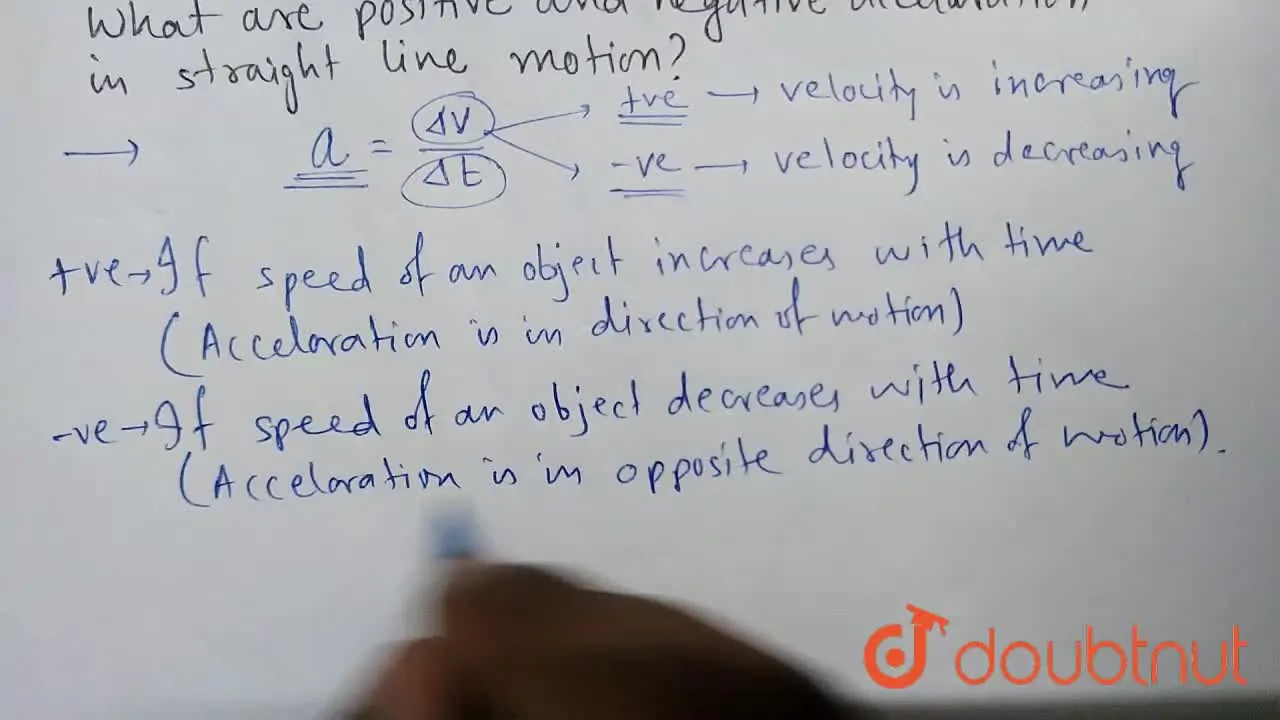 What are positive and negative acceleration
in straight line motion?
→ a = ΔV/Δt +ve → velocity is increasing
-ve → velocity is decreasing
+ve → If speed of an object increases with time
(Acceloration is in direction of motion)
-ve → If speed of an object decreases with time
(Acceloration is in opposite direction of motion).
doubtnut